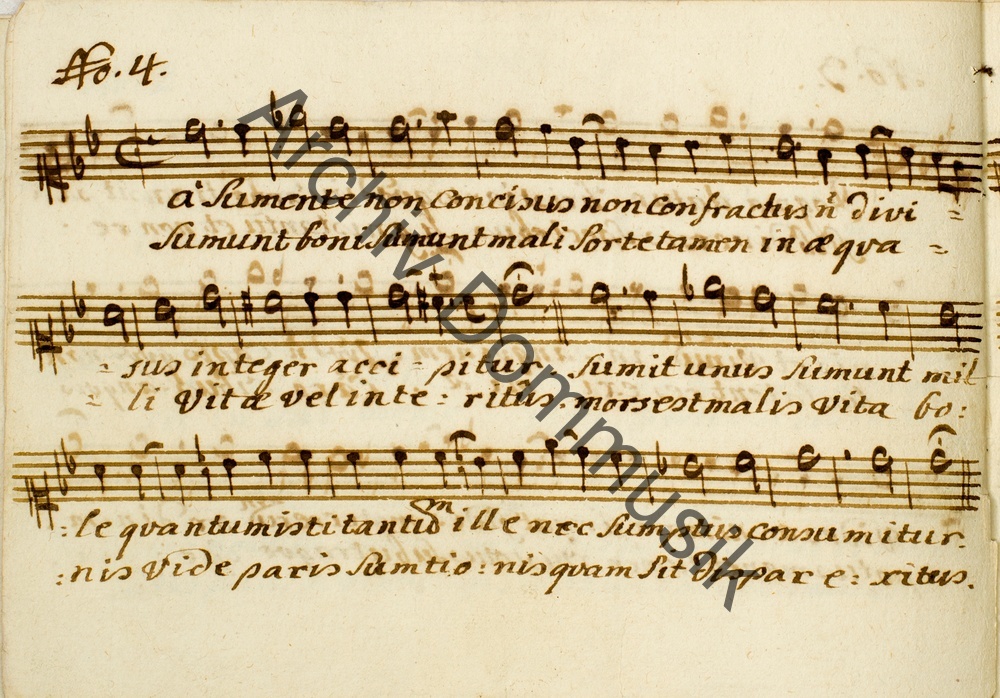 No. 4.
à Sumente non concisus non confractus n̄ divi =
Sumunt boni sumunt mali sorte tamen in æqua =
= sus integer acci = pitur. Sumit unus sumunt mil
= li Vitæ vel inte : ritus. mors est malis Vita bo :
: le quantum isti tantū ille nec sumptus consumitur.
: nis Vide paris sumtio : nis quam sit dispar e : xitus.
Archiv Dommusik